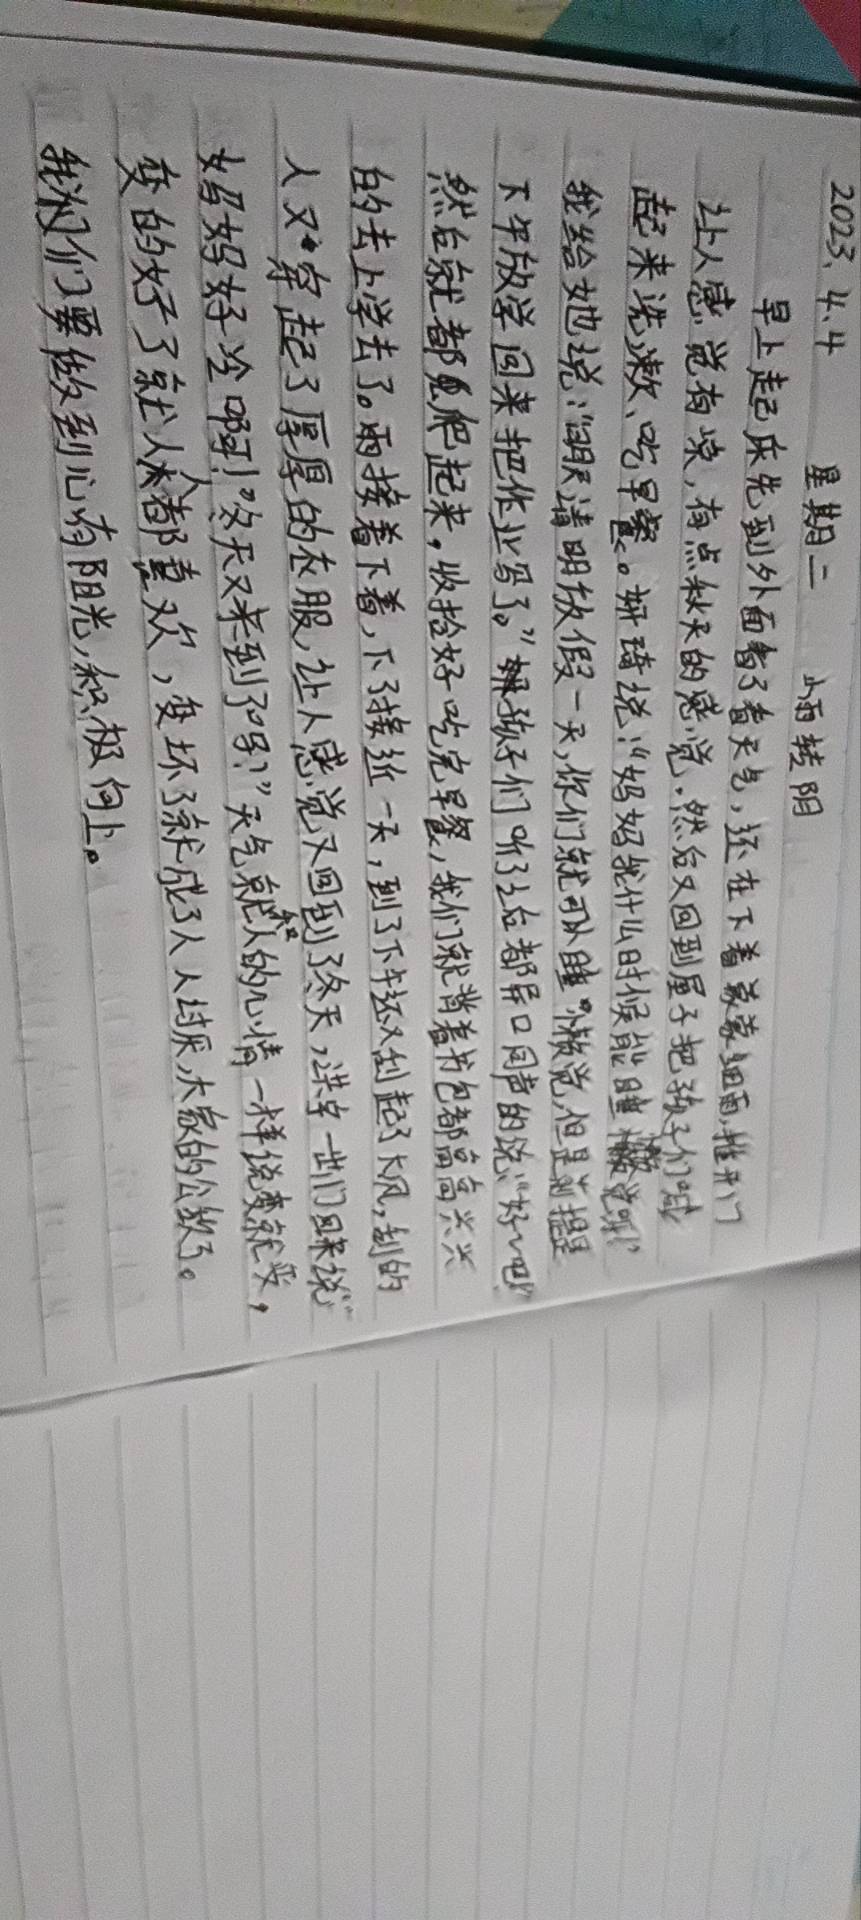 2023、4、4 星期二 小雨转阴
早上起床先到外面看了看天气，还在下着蒙蒙细雨，推开门
让人感觉有凉，有点秋天的感觉。然后又回到屋子把孩子们喊
起来洗漱、吃早餐。妍琦说：“妈妈我什么时候能睡懒觉呀？”
我给她说：“明天清明放假一天，你们就可以睡懒觉，但是前提是
下午放学回来把作业写了。”孩子们听了之后都异口同声的说：“好~吧”
然后就都爬起来，收拾好吃完早餐，我们就背着书包都高高兴兴
的去上学去了。雨接着下着，下了接近一天，到了下午还又刮起了大风，刮的
人又穿起了厚厚的衣服，让人感觉又回到了冬天，洪宇一进门回来说：“
妈妈好冷啊！冬天又来到了吗？”天气就和人的心情一样说变就变，
变的好了就人人都喜欢，变坏了就成了人人讨厌，大家的公敌了。
我们要做到心有阳光，积极向上。